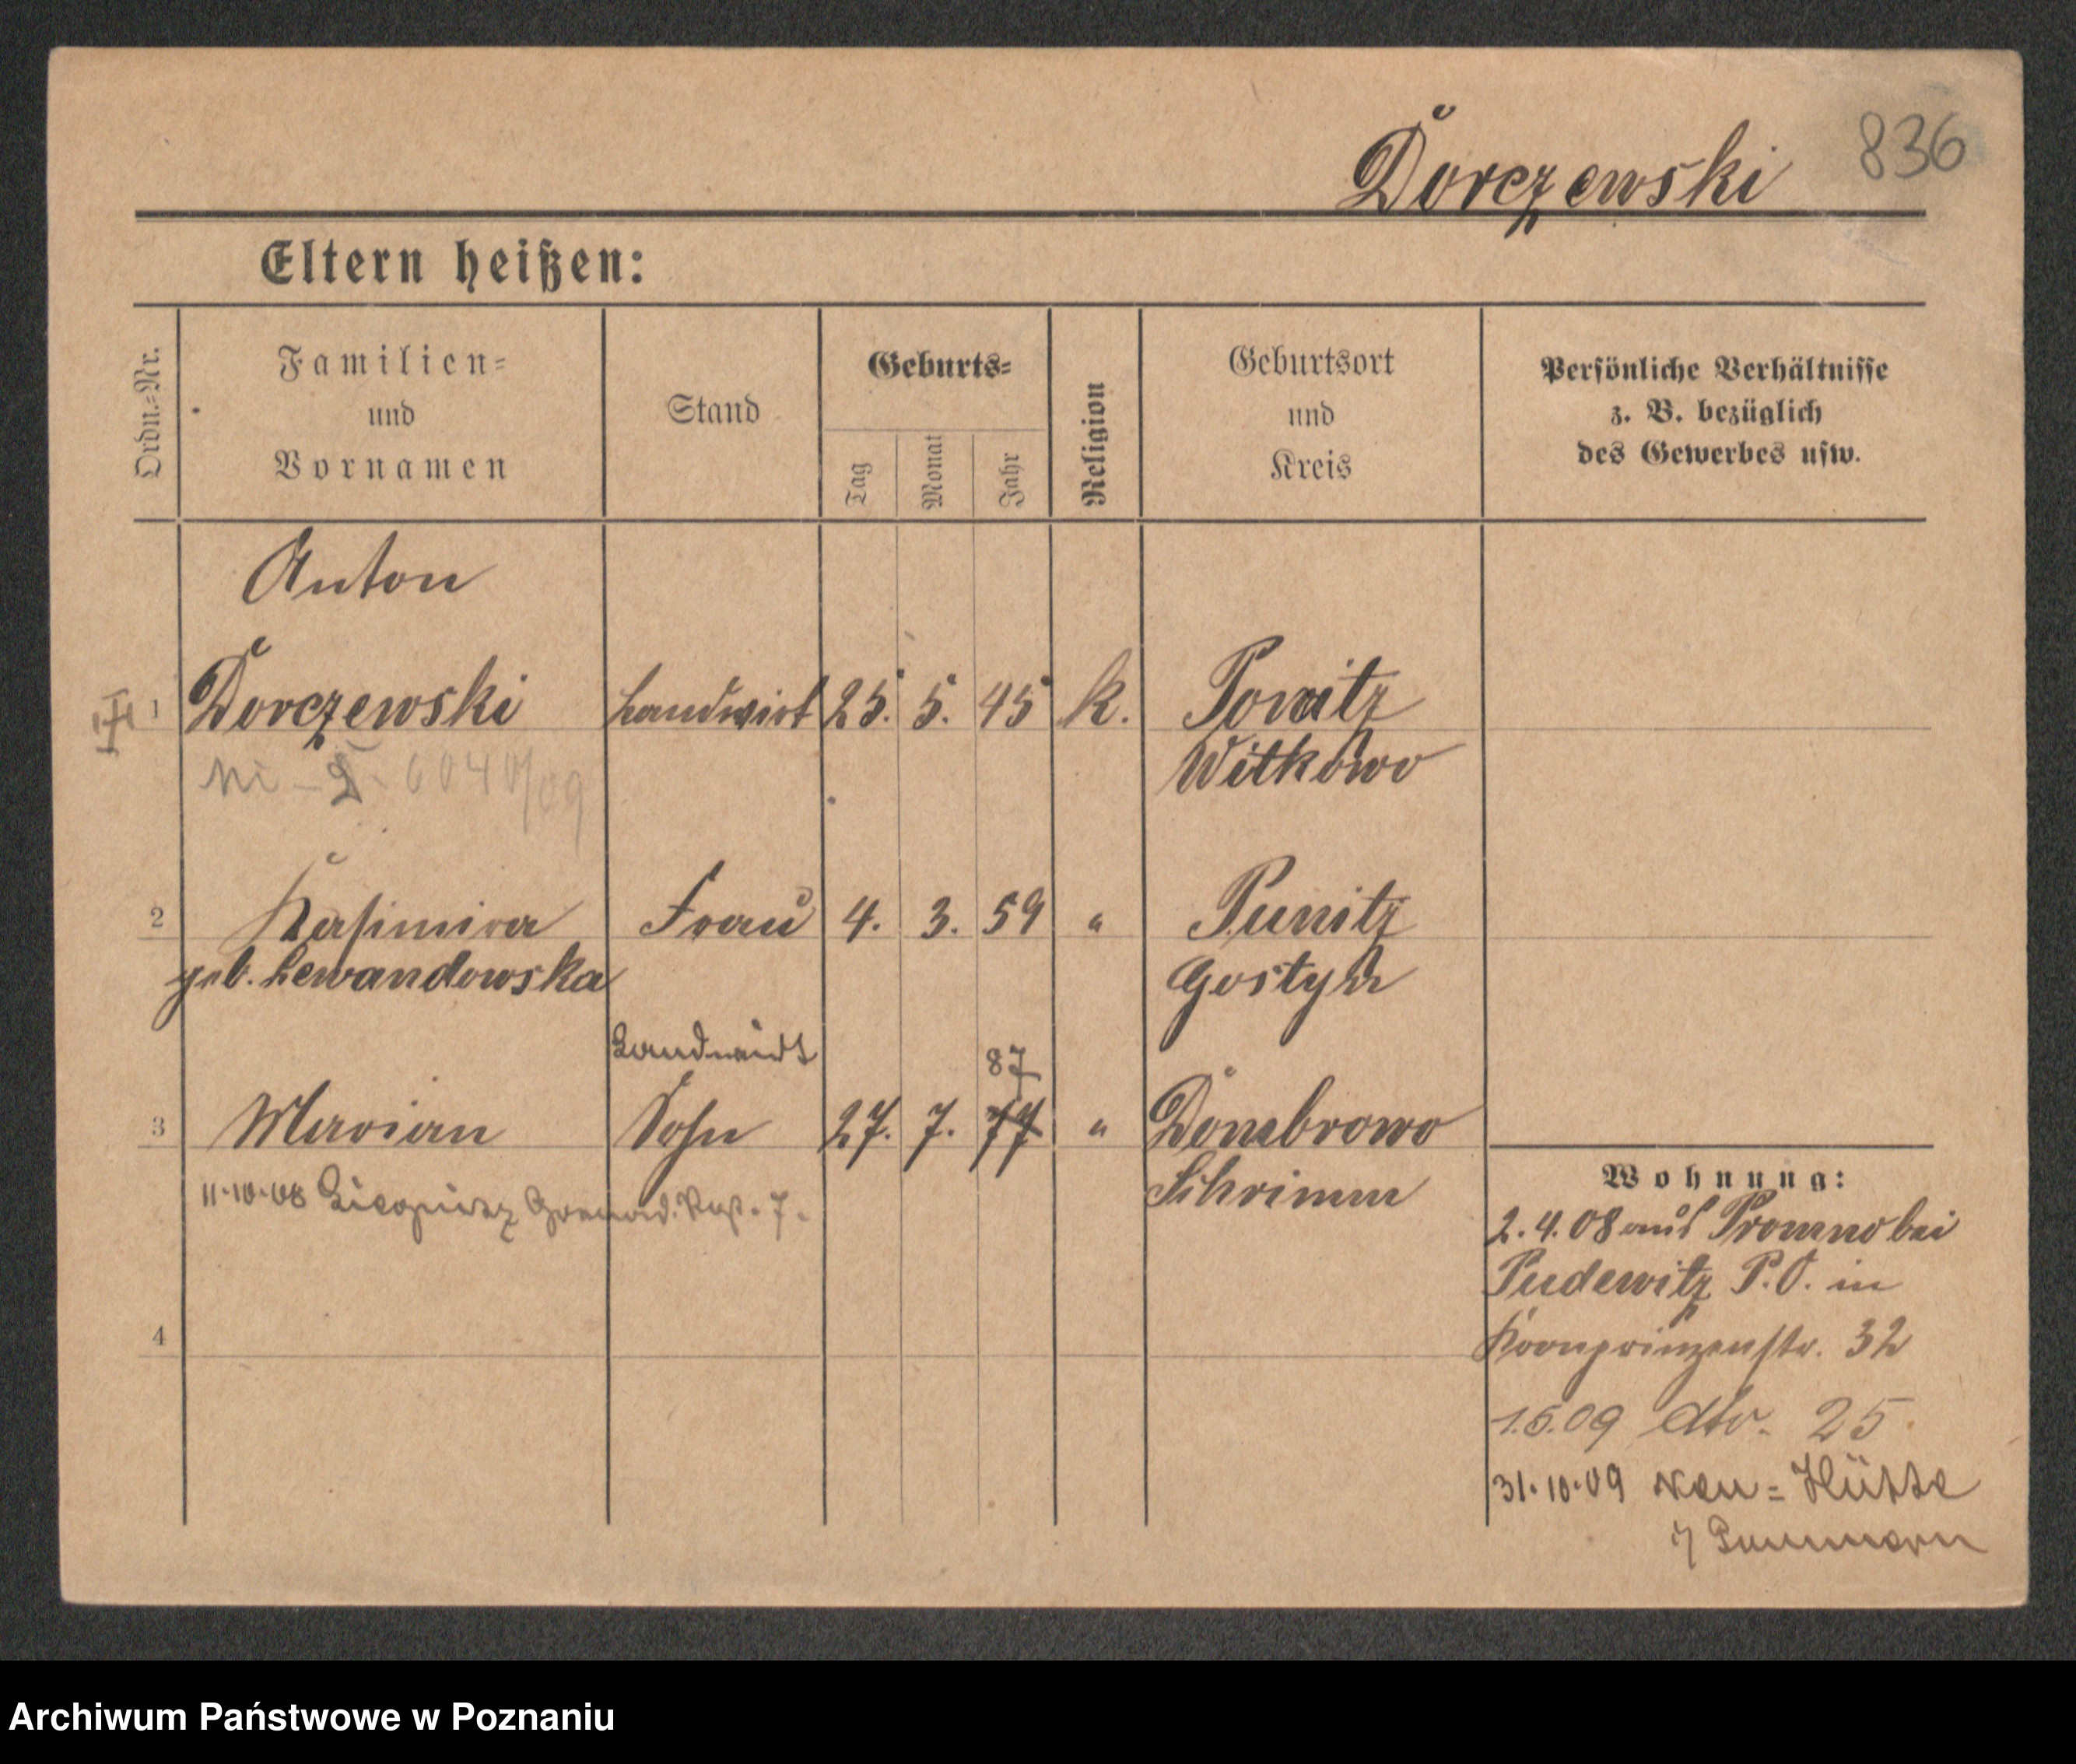 836
Dorczewski
Eltern heißen:
Ordn.-Nr.
Familien-
und
Vornamen
Stand
Geburts-
Tag
Monat
Jahr
Religion
Geburtsort
und
Kreis
Persönliche Verhältnisse
z. B. bezüglich
des Gewerbes usw.
Anton
1 Dorczewski Landwirt 25. 5. 45 k. Powitz
Witkowo
2 Kasimira Frau 4. 3. 59 " Punitz
geb. Lewandowska Gostyn
Landwirt 87
3 Marian Sohn 27. 7. 77 " Dombrowo
Schrimm
11.10.08 Liegnitz Grenad. Rgt. 7.
4
Wohnung:
2.4.08 aus Promno bei
Pudewitz P.O. in
Kronprinzenstr. 32
1.6.09 dto. 25.
31.10.09 Neu-Hütte